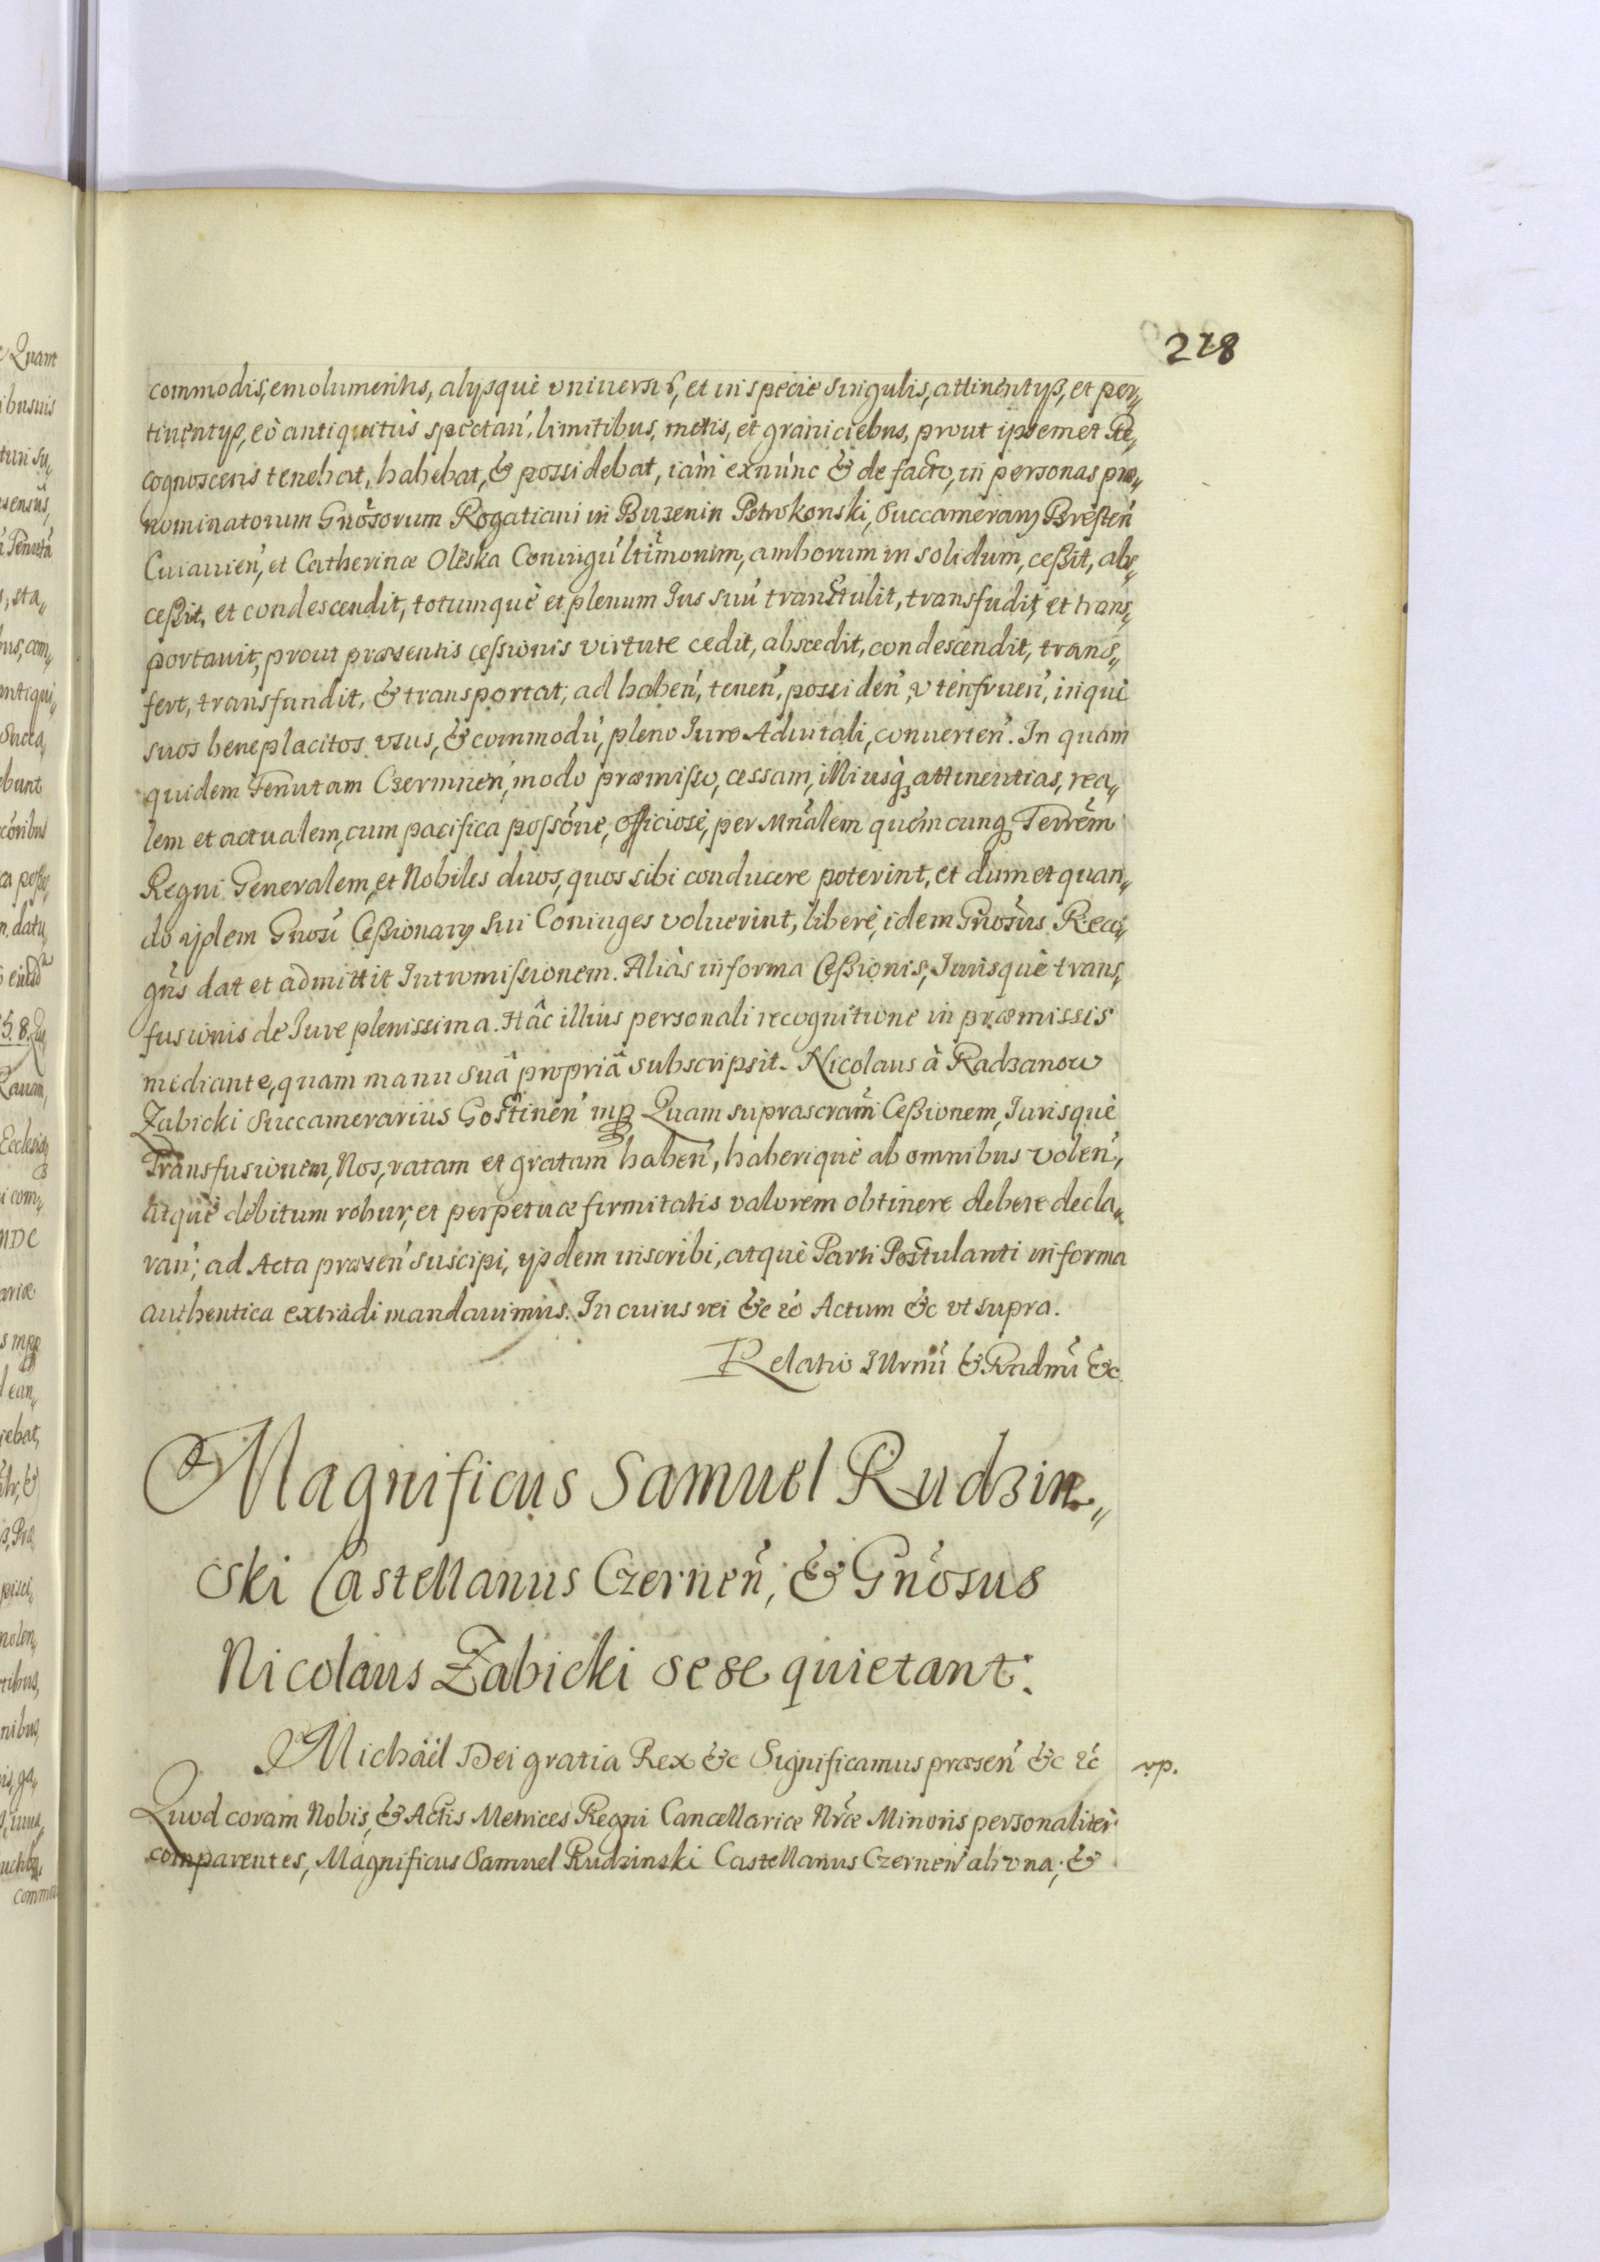 218
commodis, emolumentis, alysque vniuersis, et in specie singulis, attinentys, et per„
tinentys, eò antiquitùs spectan̄, limitibus, metis, et graniciebus, prout ipsemet Re„
cognoscens tenebat, habebat, & possidebat, iàm exnùnc & de facto, in personas præ„
nominatorum Gnōsorum Rogatiani in Buzenin Petrokonski, Succamerarij Bresten̄
Cuiauien̄, et Catherinæ Oleska Coniugū ltīmorum, amborum in solidum, ceßit, abs„
ceßit, et condescendit, totumquè et plenum Ius suū transtulit, transfudit, et trans„
portauit, prout præsentis cessionis virtute cedit, abscedit, condescendit, trans„
fert, transfundit, & transportat, ad haben̄, tenen̄, possiden̄, vtenfruen̄, inquè
suos beneplacitos vsus, & commodū, pleno Iure Aduitali, conuerten̄. In quam
quidem Tenutam Czerminen̄, modo præmisso, cessam, illiusq̨ attinentias, rea„
lem et actualem, cum pacifica possōne, officiosè, per Mn̄alem quemcunq̨ Terrēm
Regni Generalem, et Nobiles duos, quos sibi conducere poterint, et dum et quan„
do ijdem Gnosi Ceßionarij sui Coniuges voluerint, liberè, idem Gnosus Reco„
gn̄s dat et admittit Intromissionem. Aliàs in forma Ceßionis, Iurisquè trans„
fusionis de Iure plenissima. Hâc illius personali recognitione in præmissis
mediante, quam manu suâ propriâ subscripsit. Nicolaus à Radzanow
Zabicki Succamerarius Gostinen̄ mp Quam suprascram̄ Ceßionem, Iurisquè
Transfusionem, Nos, ratam et gratam haben̄, haberiquè ab omnibus volen̄,
atquè debitum robur, et perpetuæ firmitatis valorem obtinere debere decla„
ran̄, ad Acta præsen̄ suscipi, ijsdem inscribi, atquè Parti Postulanti in forma
authentica extradi mandauimus. In cuius rei &c &c Actum &c vt supra.
Relatio Illrmi & Rndmi &c.
Magnificus Samuel Rudzin„
ski Castellanus Czernen̄, & Gnōsus
Nicolaus Zabicki sese quietant.
Michäel Dei gratia Rex &c Significamus præsen̄ &c &c vp.
Quod coram Nobis, & Actis Metrices Regni Cancellariæ Nr̄æ Minoris personaliter
comparentes, Magnificus Samuel Rudzinski Castellanus Czernen̄ ab vna, &